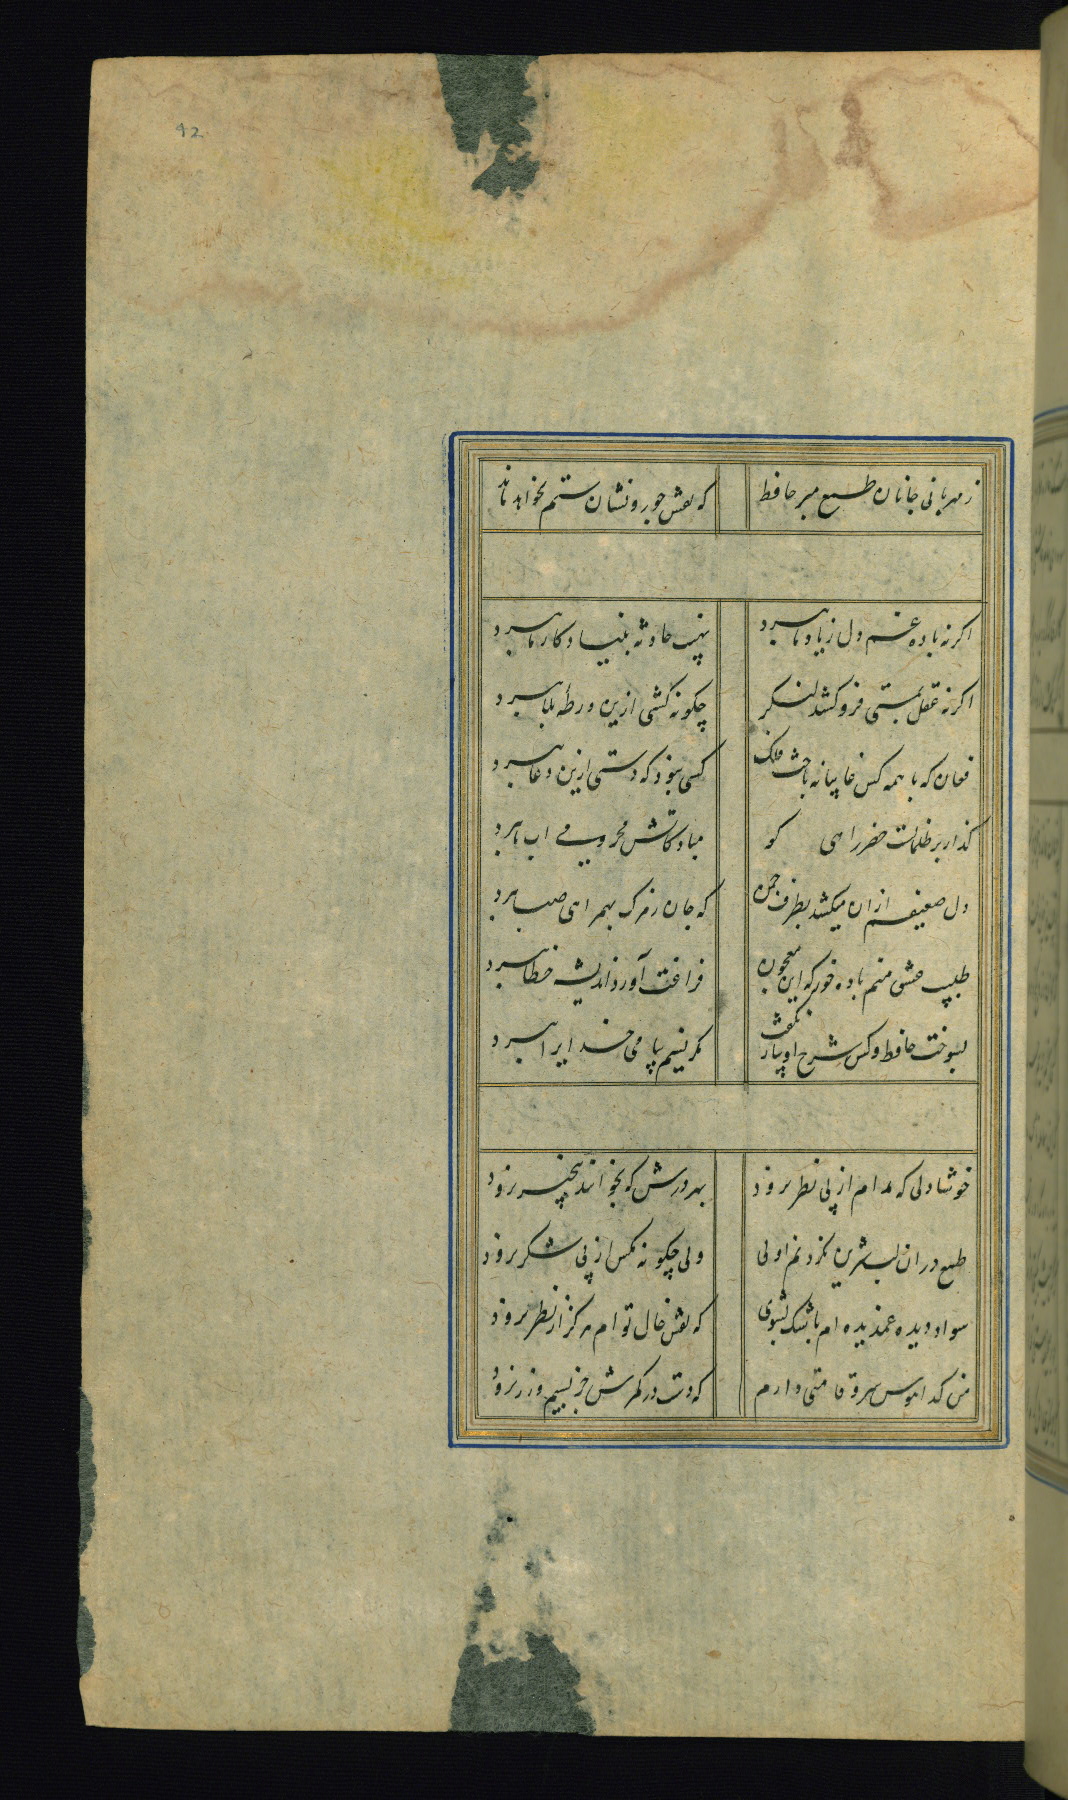 92
ز مهربانی جانان طمع مبر حافظ که نقش جور و نشان ستم نخواهد ماند
اگر نه باده غم دل ز یاد ما ببرد نهیب حادثه بنیاد کار ما ببرد
اگر نه عقل بمستی فرو کشد لنگر چگونه کشتی ازین ورطه بلا ببرد
فغان که با همه کس غایبانه باخت فلک کسی نبود که دستی ازین دغا ببرد
گذار بر ظلماتست خضر راهی کو مباد کاتش محرومی آب ما ببرد
دل ضعیفم از ان میکشد بطرف چمن که جان ز مرگ بهمراهی صبا ببرد
طبیب عشق منم باده خور که این معجون فراغت آورد و اندیشه خطا ببرد
بسوخت حافظ و کس شرح او بیار نگفت مگر نسیم پیامی خدایرا ببرد
خوشا دلی که مدام از پی نظر نرود بهر درش که بخوانند بیخبر نرود
طمع در ان لب شیرین نکردنم اولی ولی چگونه مگس از پی شکر نرود
سواد دیده غمدیده ام باشک نشوی که نقش خال توام هرگز از نظر نرود
من گدا هوس سرو قامتی دارم که دست در کمرش جز بسیم و زر نرود